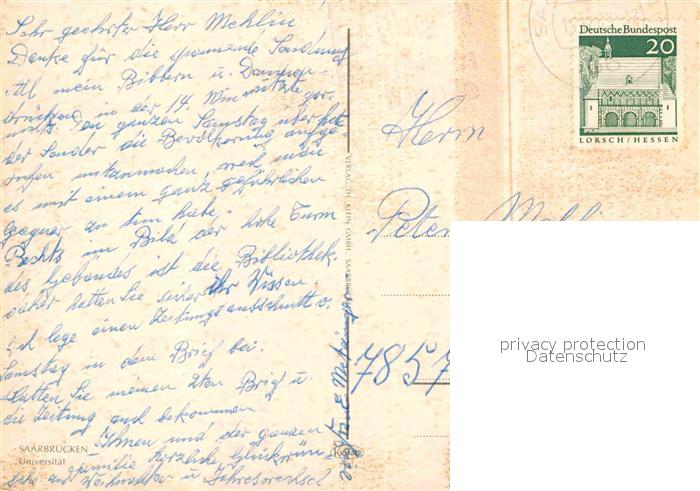 Sehr geehrter Herr Mehlin
Danke für die spannende Sendung
All mein Bibbern u. Daumen-
drücken in der 14. Min nützte gar
nichts. Den ganzen Samstag über hat
der Sender die Bevölkerung aufge-
rufen mitzumachen, weil man
es mit einem ganz gefährlichen
Gegner zu tun habe.
Rechts im Bild der hohe Turm
des Gebäudes ist die Bibliothek.
hatten Sie Ihr Wissen.
Ich lege einen Zeitungsausschnitt v.
Samstag in dem Brief bei.
Hatten Sie meinen 2ten Brief u.
die Zeitung auch bekommen
Ihnen und der ganzen
Familie herzliche Glückwün-
sche zu Weihnachten u Jahreswechsel
SAARBRÜCKEN
Universität
VERLAG H. KLEIN GMBH. SAARBRÜCKEN
Deutsche Bundespost
20
LORSCH / HESSEN
Herrn
Peter Mehlin
7857
privacy protection
Datenschutz